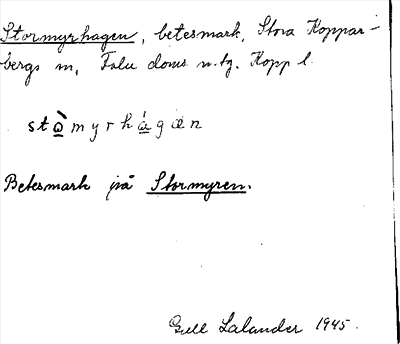 Stormyrhagen, betesmark, Stora Koppar-
bergs sn, Falu doms. n. tg. Kopp l.
stò̱myrhá̱gæn
Betesmark på Stormyren.
Gull Lalander 1945.